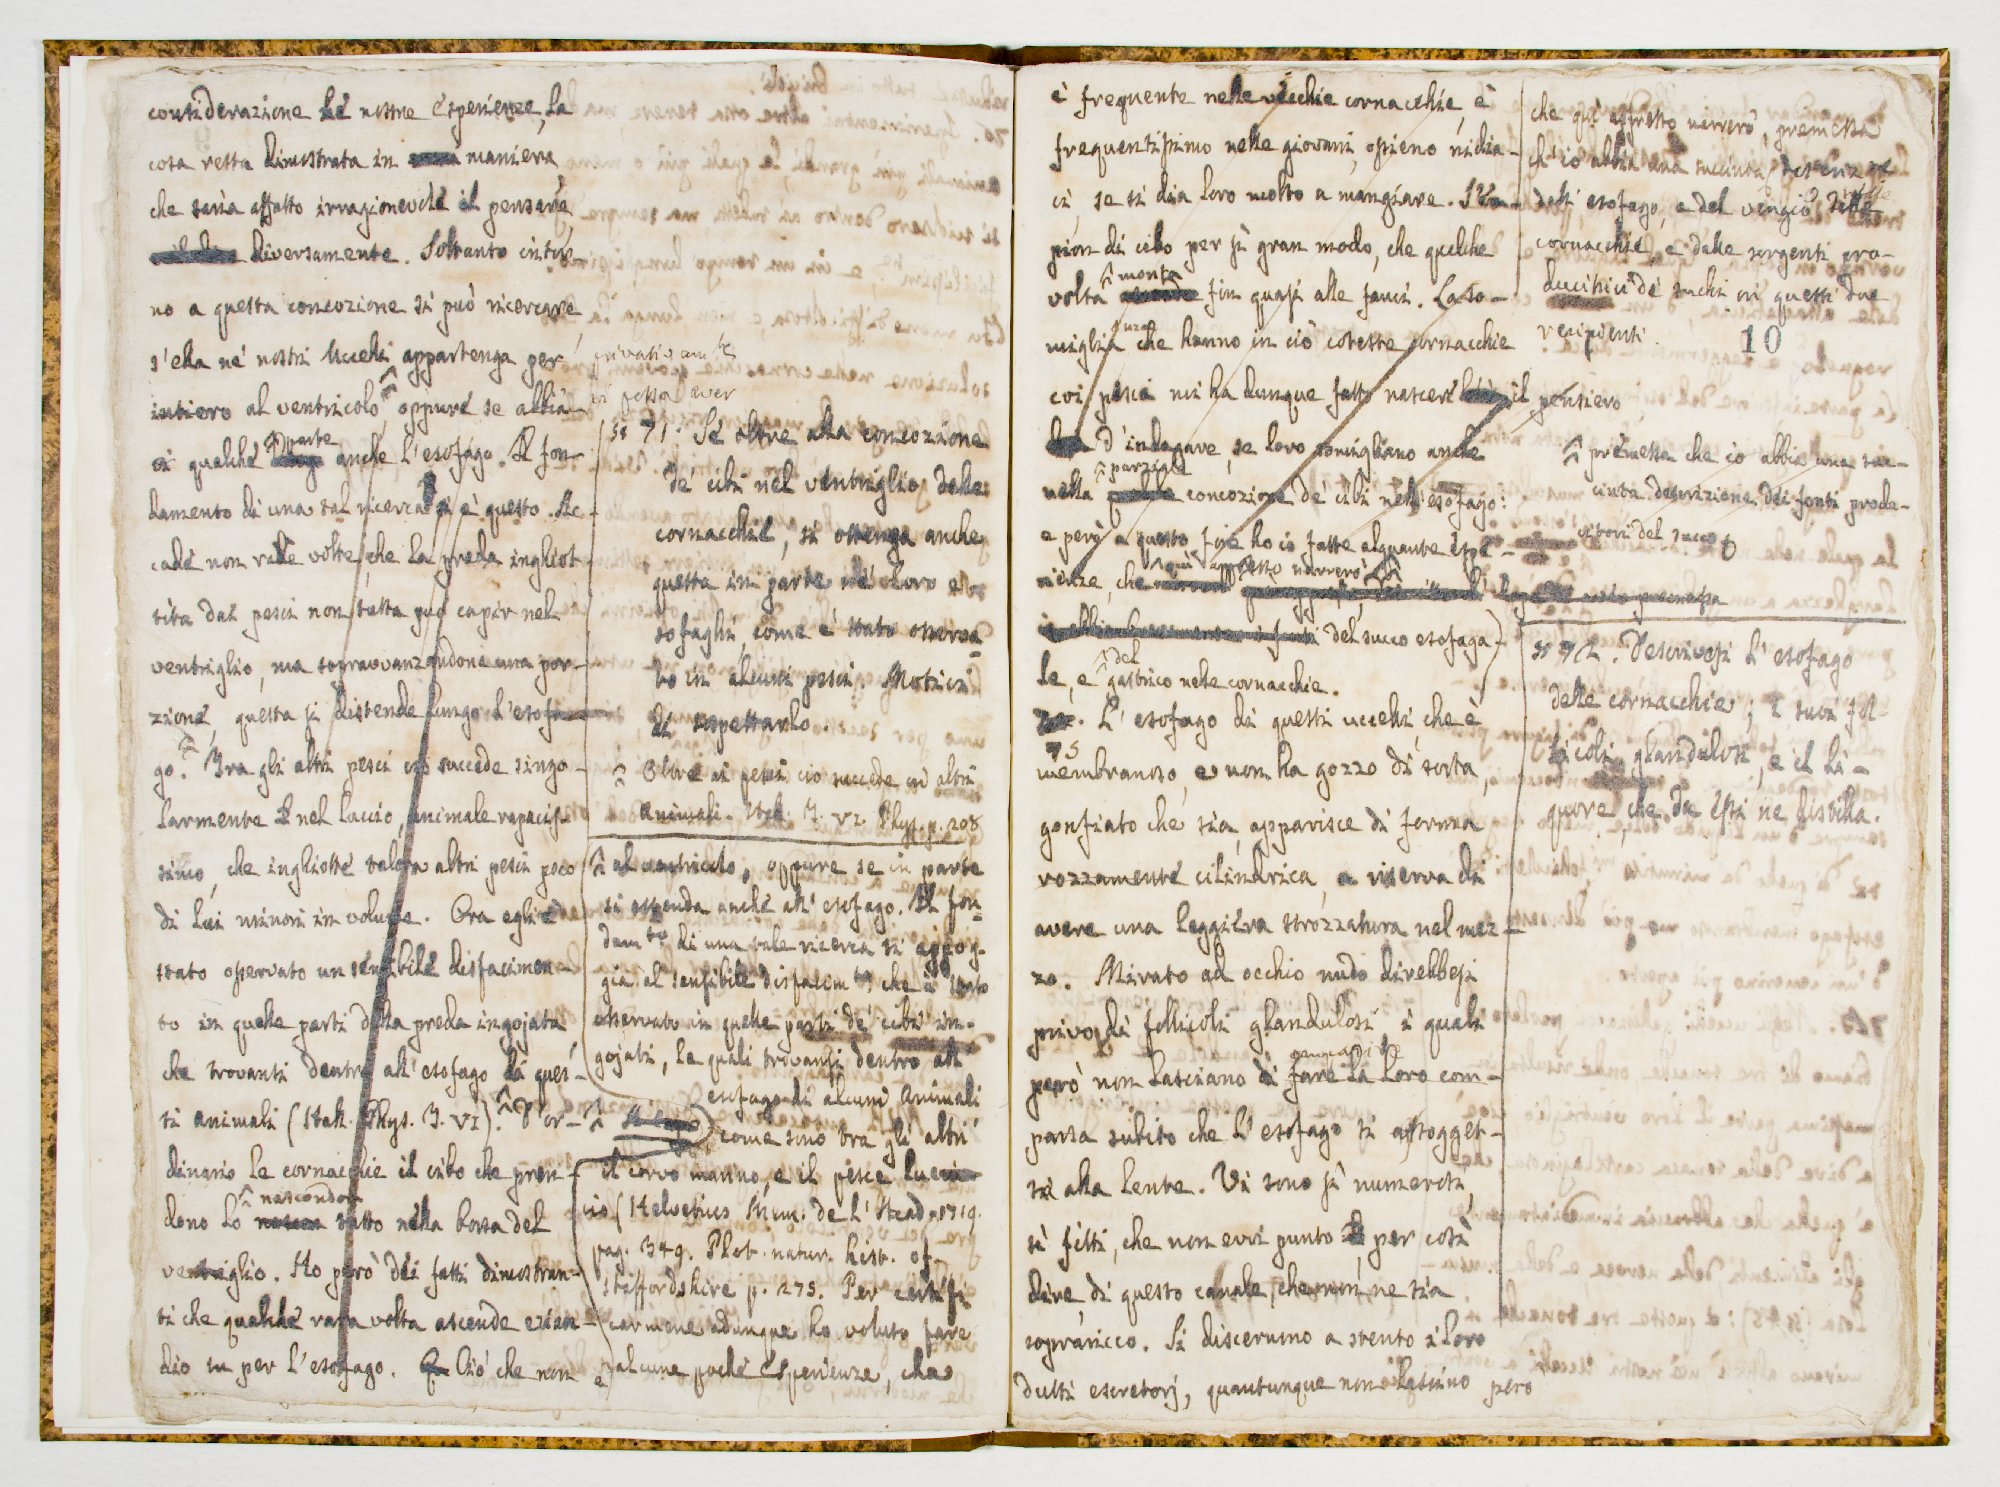 considerazione le nostre esperienze, la
cosa resta dimostrata in maniera,
che saria affatto irragionevole il pensare
diversamente. Soltanto intor-
no a questa concozione si può ricercare
s'ella ne' nostri Uccelli appartenga per
intiero al ventricolo, oppure se abbia-
vi qualche parte anche l'esofago. Il fon-
damento di una tal ricerca si è questo. Ac-
cade non rade volte, che la preda inghiot-
tita dai pesci non tutta può capir nel
ventriglio, ma sopravvanzandone una por-
zione, questa si distende lungo l'esofa-
go. Fra gli altri pesci ciò succede singo-
larmente nel luccio, animale rapacis-
simo, che inghiotte talora altri pesci poco
di lui minori in volume. Ora egli è
stato osservato un sensibile disfacimen-
to in quelle parti della preda ingojata,
che trovansi dentro all'esofago di ques-
ti animali (Hall. Phys. T. VI). D'or-
dinario le cornacchie il cibo che pren-
dono lo nascondon tutto nella borsa del
ventriglio. Ho però dei fatti dimostran-
ti che qualche rara volta ascende ezian-
dio su per l'esofago. Ciò che non
privativam.te
vi possa aver
§ 71. Se oltre alla concozione
de' cibi nel ventriglio delle
cornacchie, si ottenga anche
questa in parte ne' loro e-
sofaghi, come è stato osserva-
to in alcuni pesci. Motivi
di sospettarlo.
Oltre ai pesci ciò succede in altri
animali. Hall. T. VI. Phys. p. 208
al ventricolo, oppure se in parte
si estenda anche all'esofago. Il fon-
dam.to di una tale ricerca si appog-
gia al sensibile disfacim.to che è stato
osservato in quelle parti de' cibi in-
gojati, le quali trovansi dentro all'
esofago di alcuni Animali
come sono tra gli altri
il corvo marino, e il pesce lucci-
cio (Helvetius Mem. de l'Acad. 1719.
pag. 349. Plot. natur. hist. of
Staffordshire p. 275. Per certifi-
carmene adunque ho voluto fare
alcune poche esperienze, che
è frequente nelle vecchie cornacchie, è
frequentissimo nelle giovani, ossieno nidia-
ci, se si dia loro molto a mangiare. S'em-
pion di cibo per sì gran modo, che qualche
volta monta fin quasi alle fauci. La so-
miglianza che hanno in ciò coteste cornacchie
coi pesci mi ha dunque fatto nascere il pensiero
d'indagare, se loro somigliano anche
nella parziale concozione de' cibi nell'esofago:
e però a questo fine ho io fatte alquante espe-
rienze, che qui appresso narrerò
del succo esofaga-
le, e del gastrico nelle cornacchie.
75
L'esofago di questi uccelli, che è
membranoso, e non ha gozzo di sorta,
gonfiato che sia, apparisce di forma
rozzamente cilindrica, a riserva di
avere una leggiera strozzatura nel mez-
zo. Mirato ad occhio nudo direbbesi
privo di follicoli glandulosi, i quali
però non lasciano di fare la loro com-
parsa subito che l'esofago si assogget-
ta alla lente. Vi sono sì numerosi,
sì fitti, che non evvi punto per così
dire, di questo canale, che non ne sia
sopraricco. Si discernono a stento i loro
dutti escretorj, quantunque non lascino però
che qui appresso narrerò, premessa
ch'io abbia una succinta descrizione
dell'esofago, e del ventriglio delle
cornacchie, e delle sorgenti pro-
duttrici de' succhi in questi due
recipienti.
10
premessa che io abbia una suc-
cinta descrizione dei fonti produ-
citori del succo
§ 72. Descrivesi l'esofago
delle cornacchie; i suoi fol-
licoli glandulosi, e il li-
quore, che da essi ne distilla.